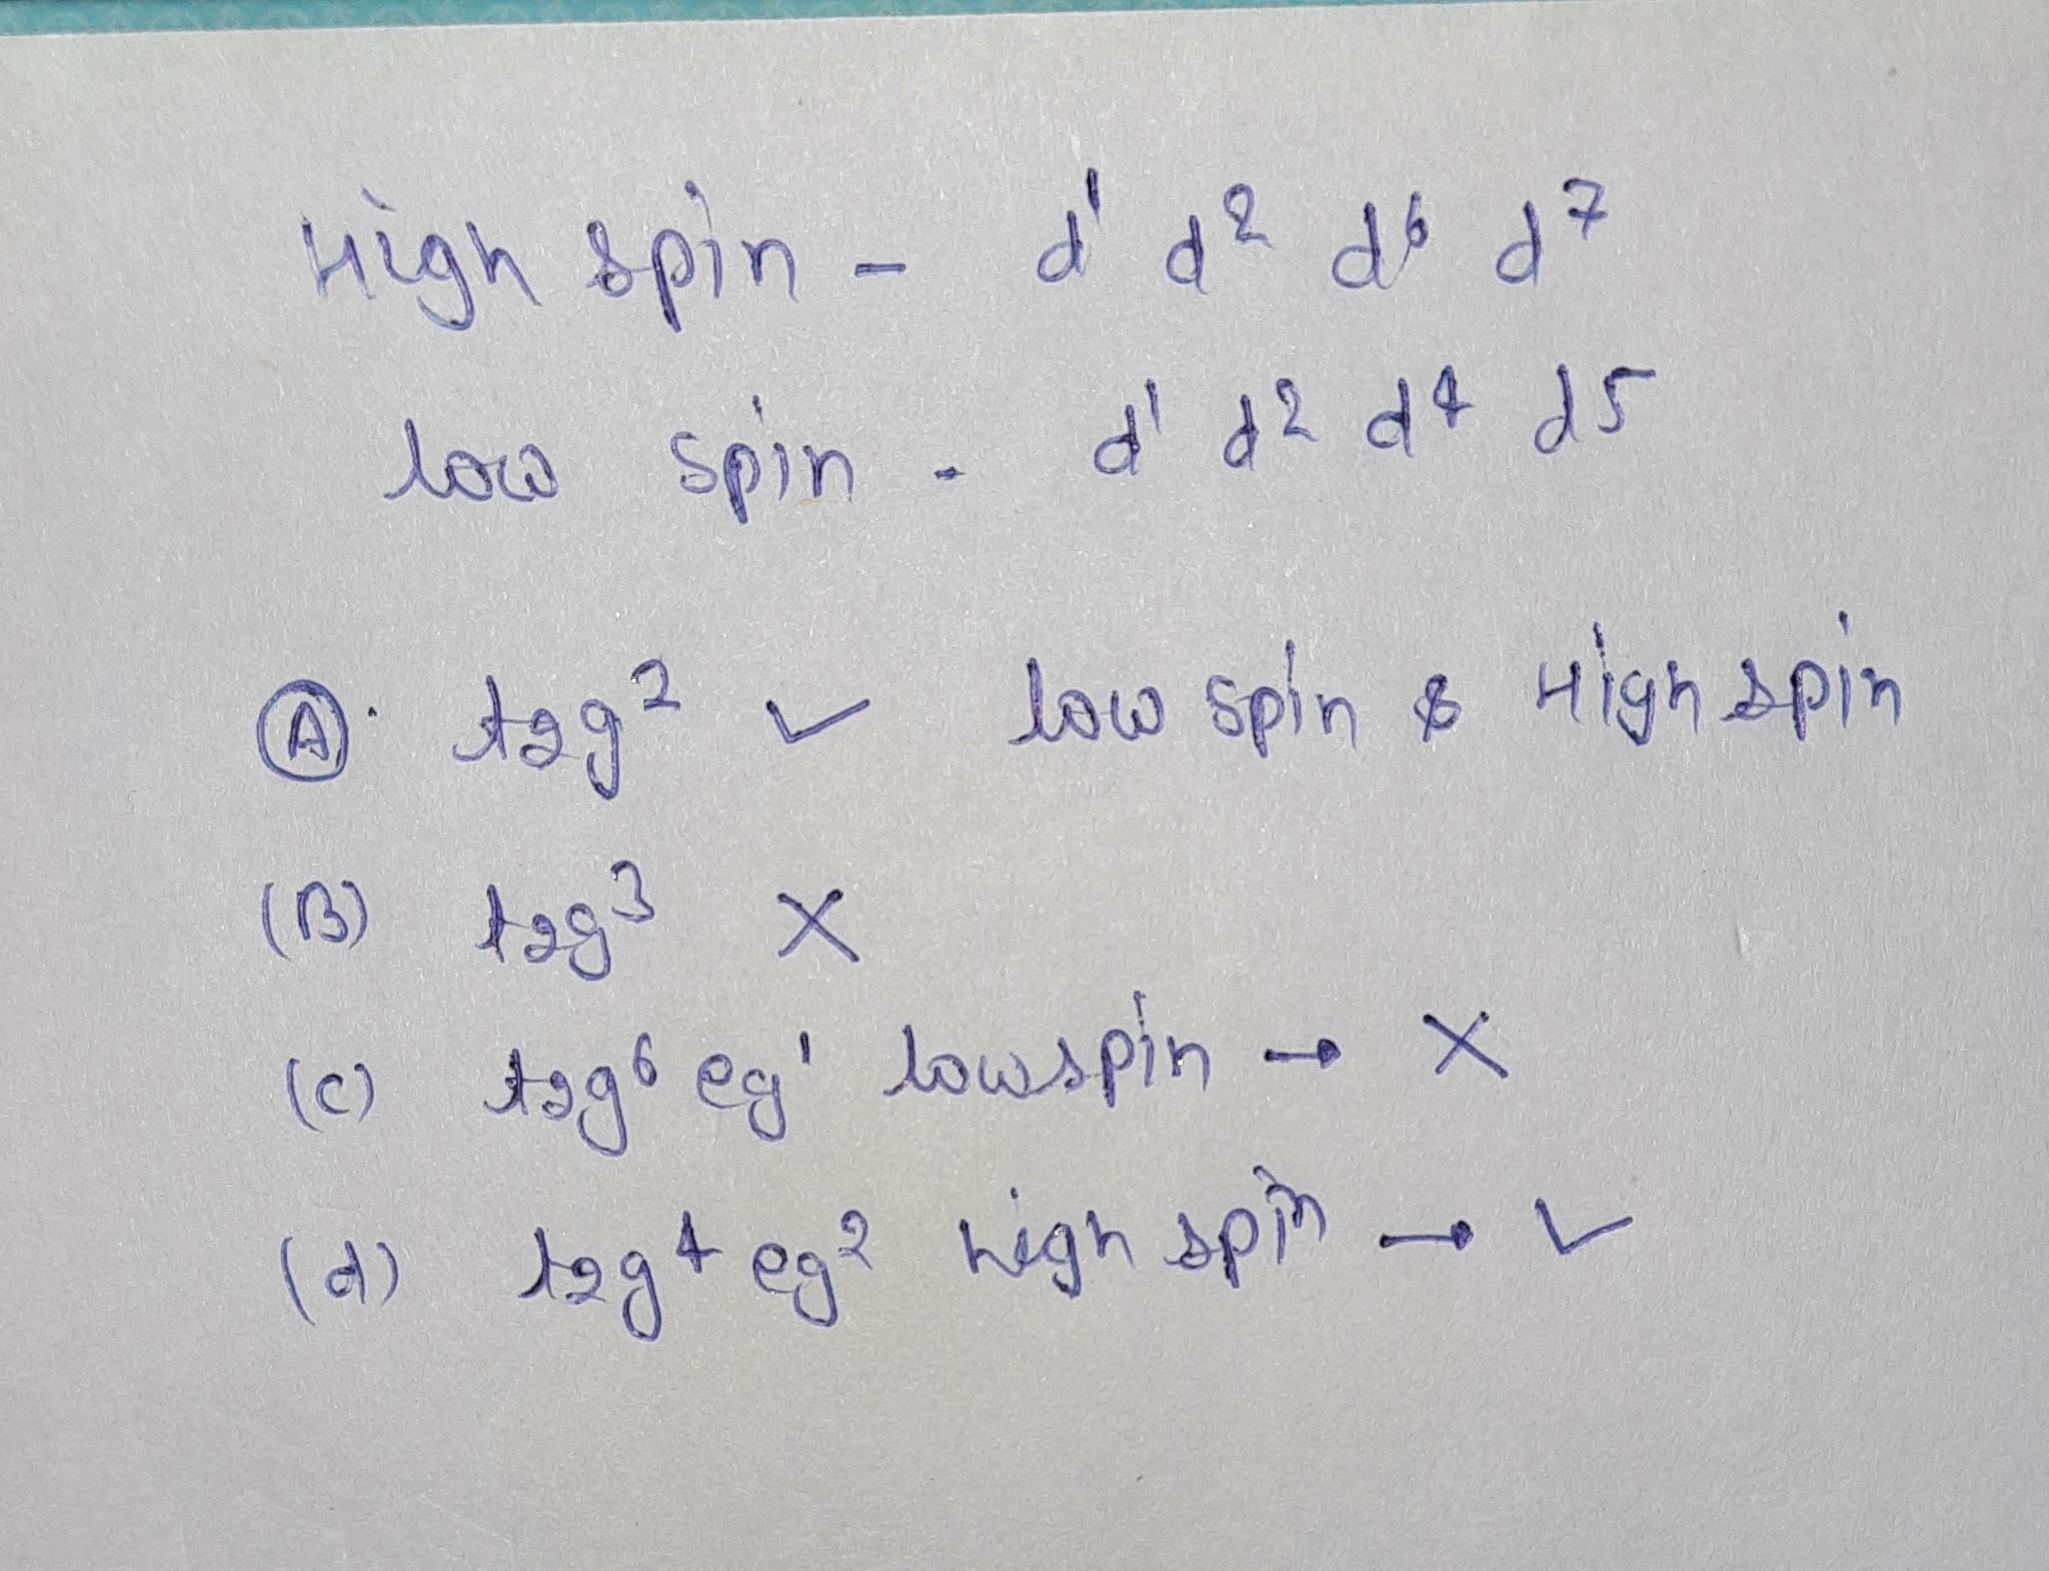 High spin - d¹ d² d⁶ d⁷
low spin - d¹ d² d⁴ d5
(A). t2g² ✓ low spin & High spin
(B) t2g³ X
(c) t2g⁶ eg¹ low spin → X
(d) t2g⁴ eg² high spin → ✓